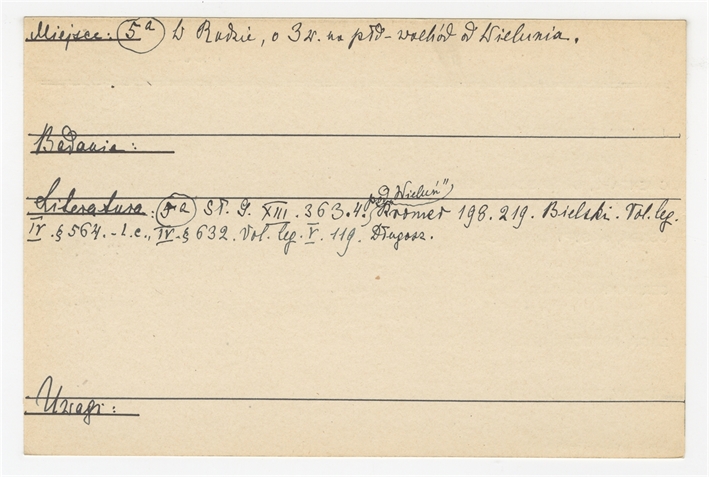 Miejsce: 5a W Rudzie, o 3 w. na płd-wschód od Wielunia.
Badania:
pod „Wieluń"
Literatura: 5a Sł. G. XIII. 363.4. Kromer 198. 219. Bielski. Vol. leg.
IV. § 564. - l. c., IV. § 632. Vol. leg. V. 119. Długosz.
Uwagi: